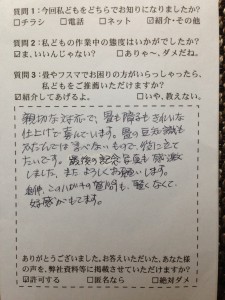 質問1：今回私どもをどちらでお知りになりましたか？
□チラシ　□電話　□ネット　☑紹介・その他
質問2：私どもの作業中の態度はいかがでしたか？
□ま、いいんじゃない？　□ありゃ～、ダメだね。
質問3：畳やフスマでお困りの方がいらっしゃったら、
私どもをご推薦いただけますか？
☑紹介してあげるよ。　□いや、教えない。
親切な対応で、畳も障子もきれいな
仕上げで喜んでいます。畳の豆知識も
です。最後の記念写真も
しました。またよろしくお願いします。
このハガキの質問も、堅くなくて、
好感がもてます。
ありがとうございました。お答えいただいた、あなた様
の声を、弊社資料等に掲載させていただけますか？
☑許可する　□匿名なら　□絶対ダメ